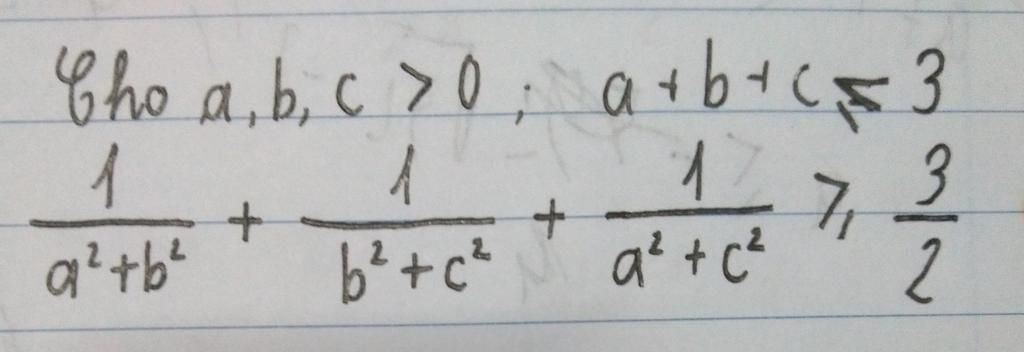 Cho a, b, c > 0 ; a + b + c ≤ 3
1/(a²+b²) + 1/(b²+c²) + 1/(a²+c²) ≥ 3/2